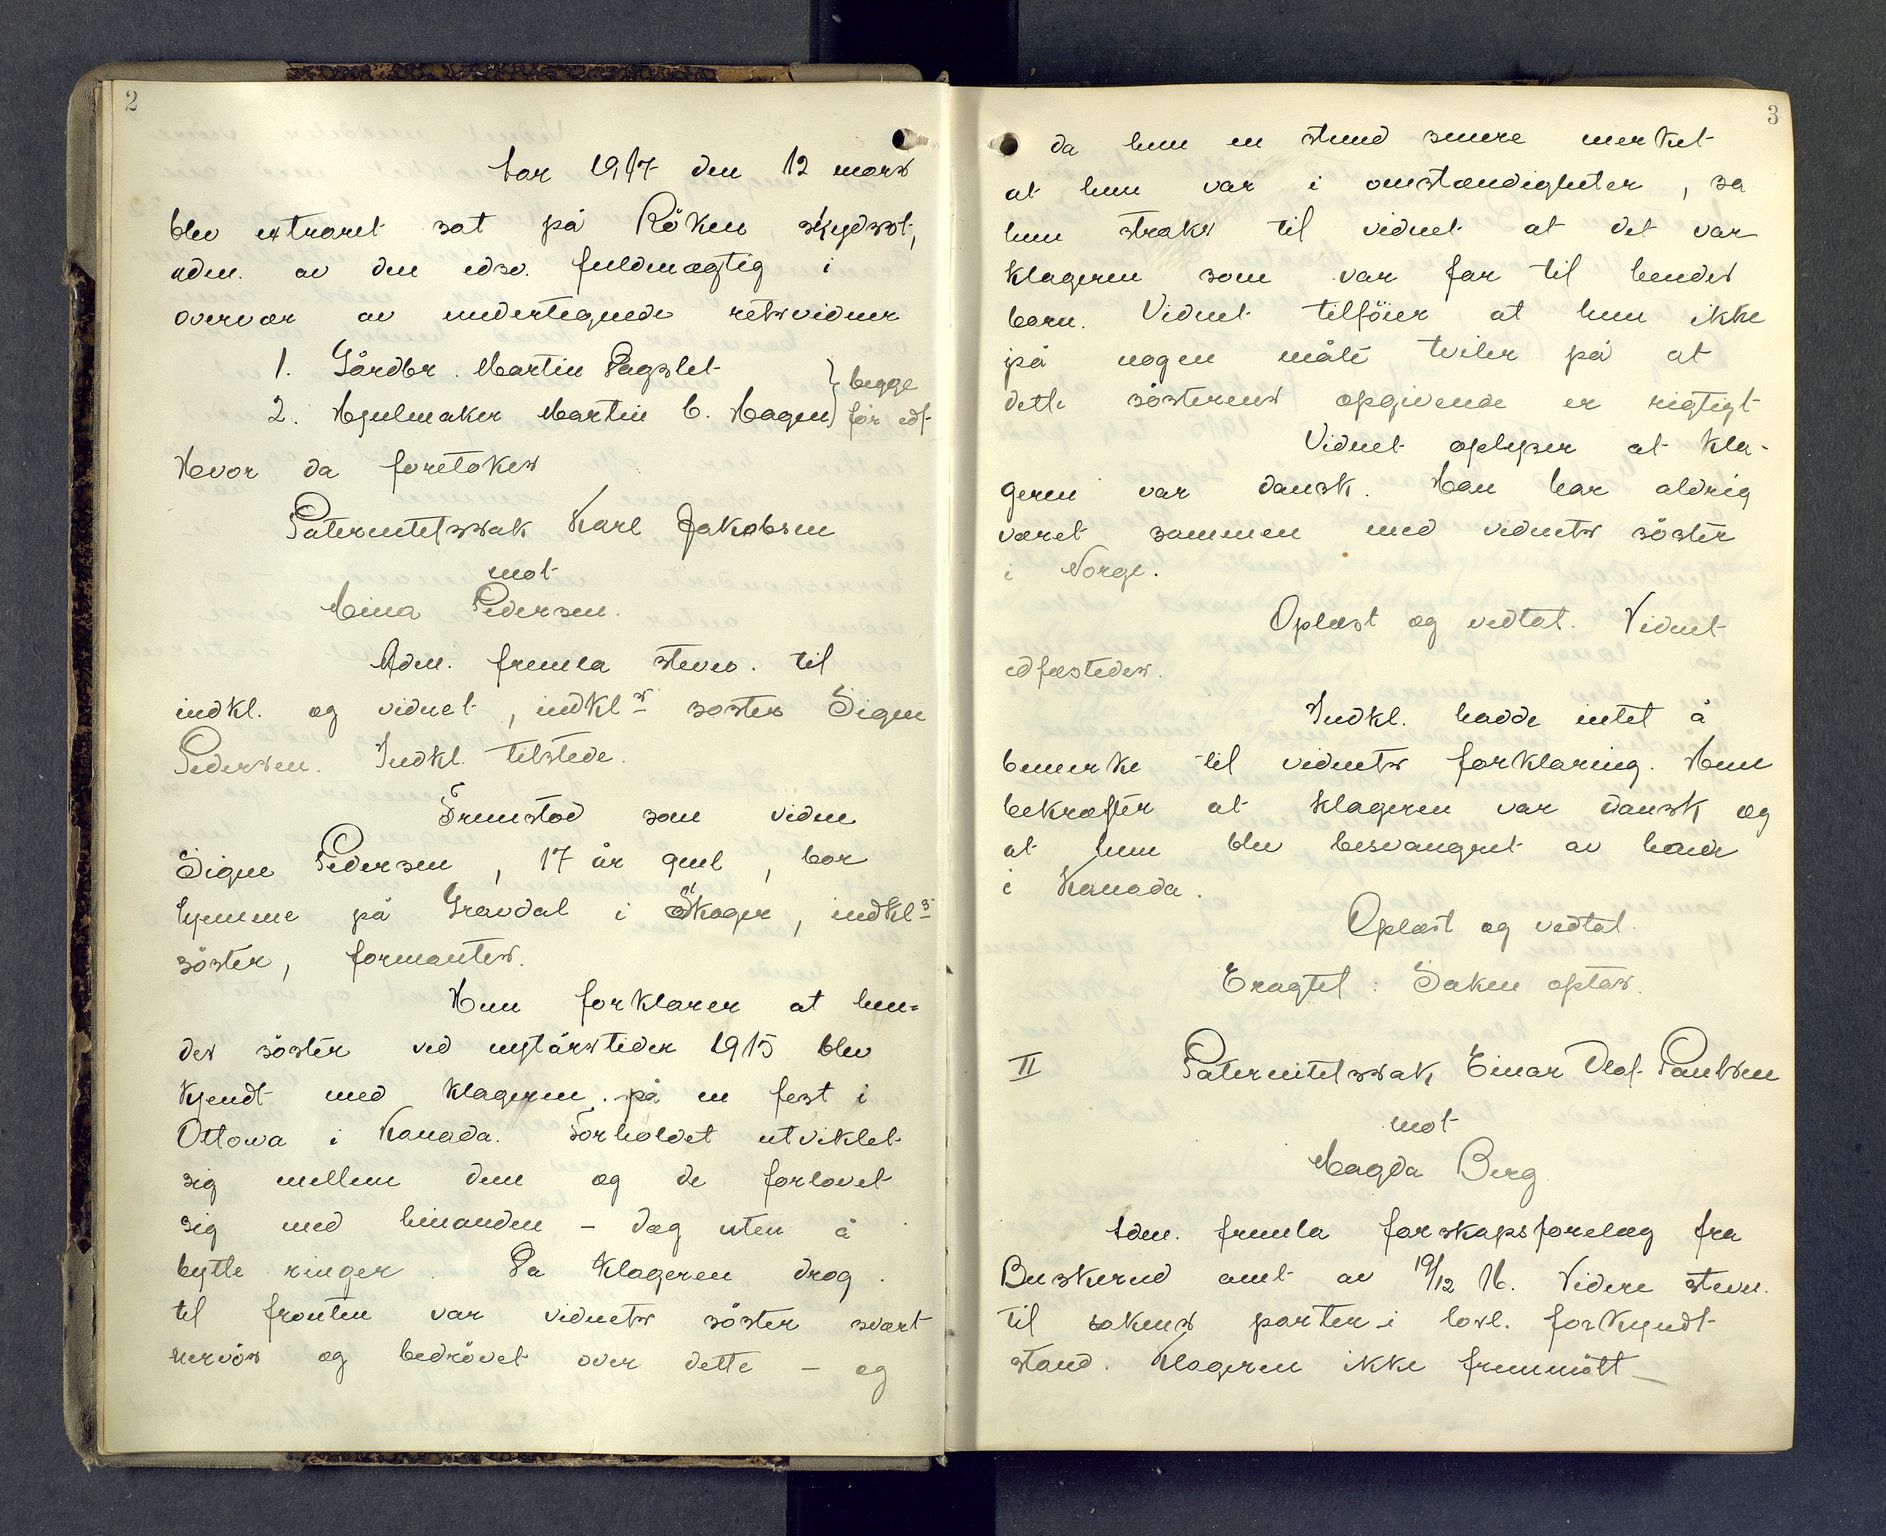 2
År 1917 den 12 mars
blev extraret sat på Röken skydsst,
adm. av den edsv. fuldmægtig i
overvær av undertegnede retsvidner
1. Gårdbr. Martin Pagslet } begge
2. Hjulmaker Martin C. Hagen } før edf.
Hvor da foretokes
Paternitetssak Karl Jakobsen
mot
Mina Pedersen.
Adm. fremla stevn. til
indkl. og vidnet, indkls søster Signe
Pedersen. Indkl. tilstede.
Fremstod som vidne
Signe Pedersen, 17 år gml, bor
hjemme på Gravdal i Skoger, indkls
søster, formantes.
Hun forklarer at hen-
des søster ved nytårstider 1915 blev
kjendt med klageren på en fest i
Ottowa i Kanada. Forholdet utviklet
sig mellem dem og de forlovet
sig med hinanden – dog uten å
bytte ringer. Da klageren drog
til fronten var vidnets søster svært
nervøs og bedrøvet over dette – og
3
da hun en stund senere merket
at hun var i omstændigheter, sa
hun straks til vidnet at det var
klageren som var far til hendes
barn. Vidnet tilføier, at hun ikke
på nogen måte tviler på at
dette søsterens opgivende er rigtigt
Vidnet oplyser at kla-
geren var dansk. Han har aldrig
været sammen med vidnets søster
i Norge.
Oplæst og vedtat. Vidnet
edfæstedes.
Indkl. hadde intet å
bemerke til vidnets forklaring. Hun
bekræfter at klageren var dansk og
at hun blev besvangret av ham
i Kanada.
Oplæst og vedtat.
Eragtet: Saken optas.
II Paternitetssak Einar Olaf Paulsen
mot
Magda Berg
Adm. fremla farskapsforelæg fra
Buskerud amt av 19/12 16. Videre stevn.
til sakens parter i lovl. forkyndt
stand. Klageren ikke fremmøtt –